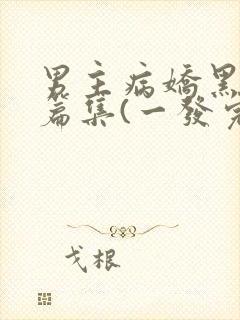 男主病嬌黑
篇集(一發完
戈根